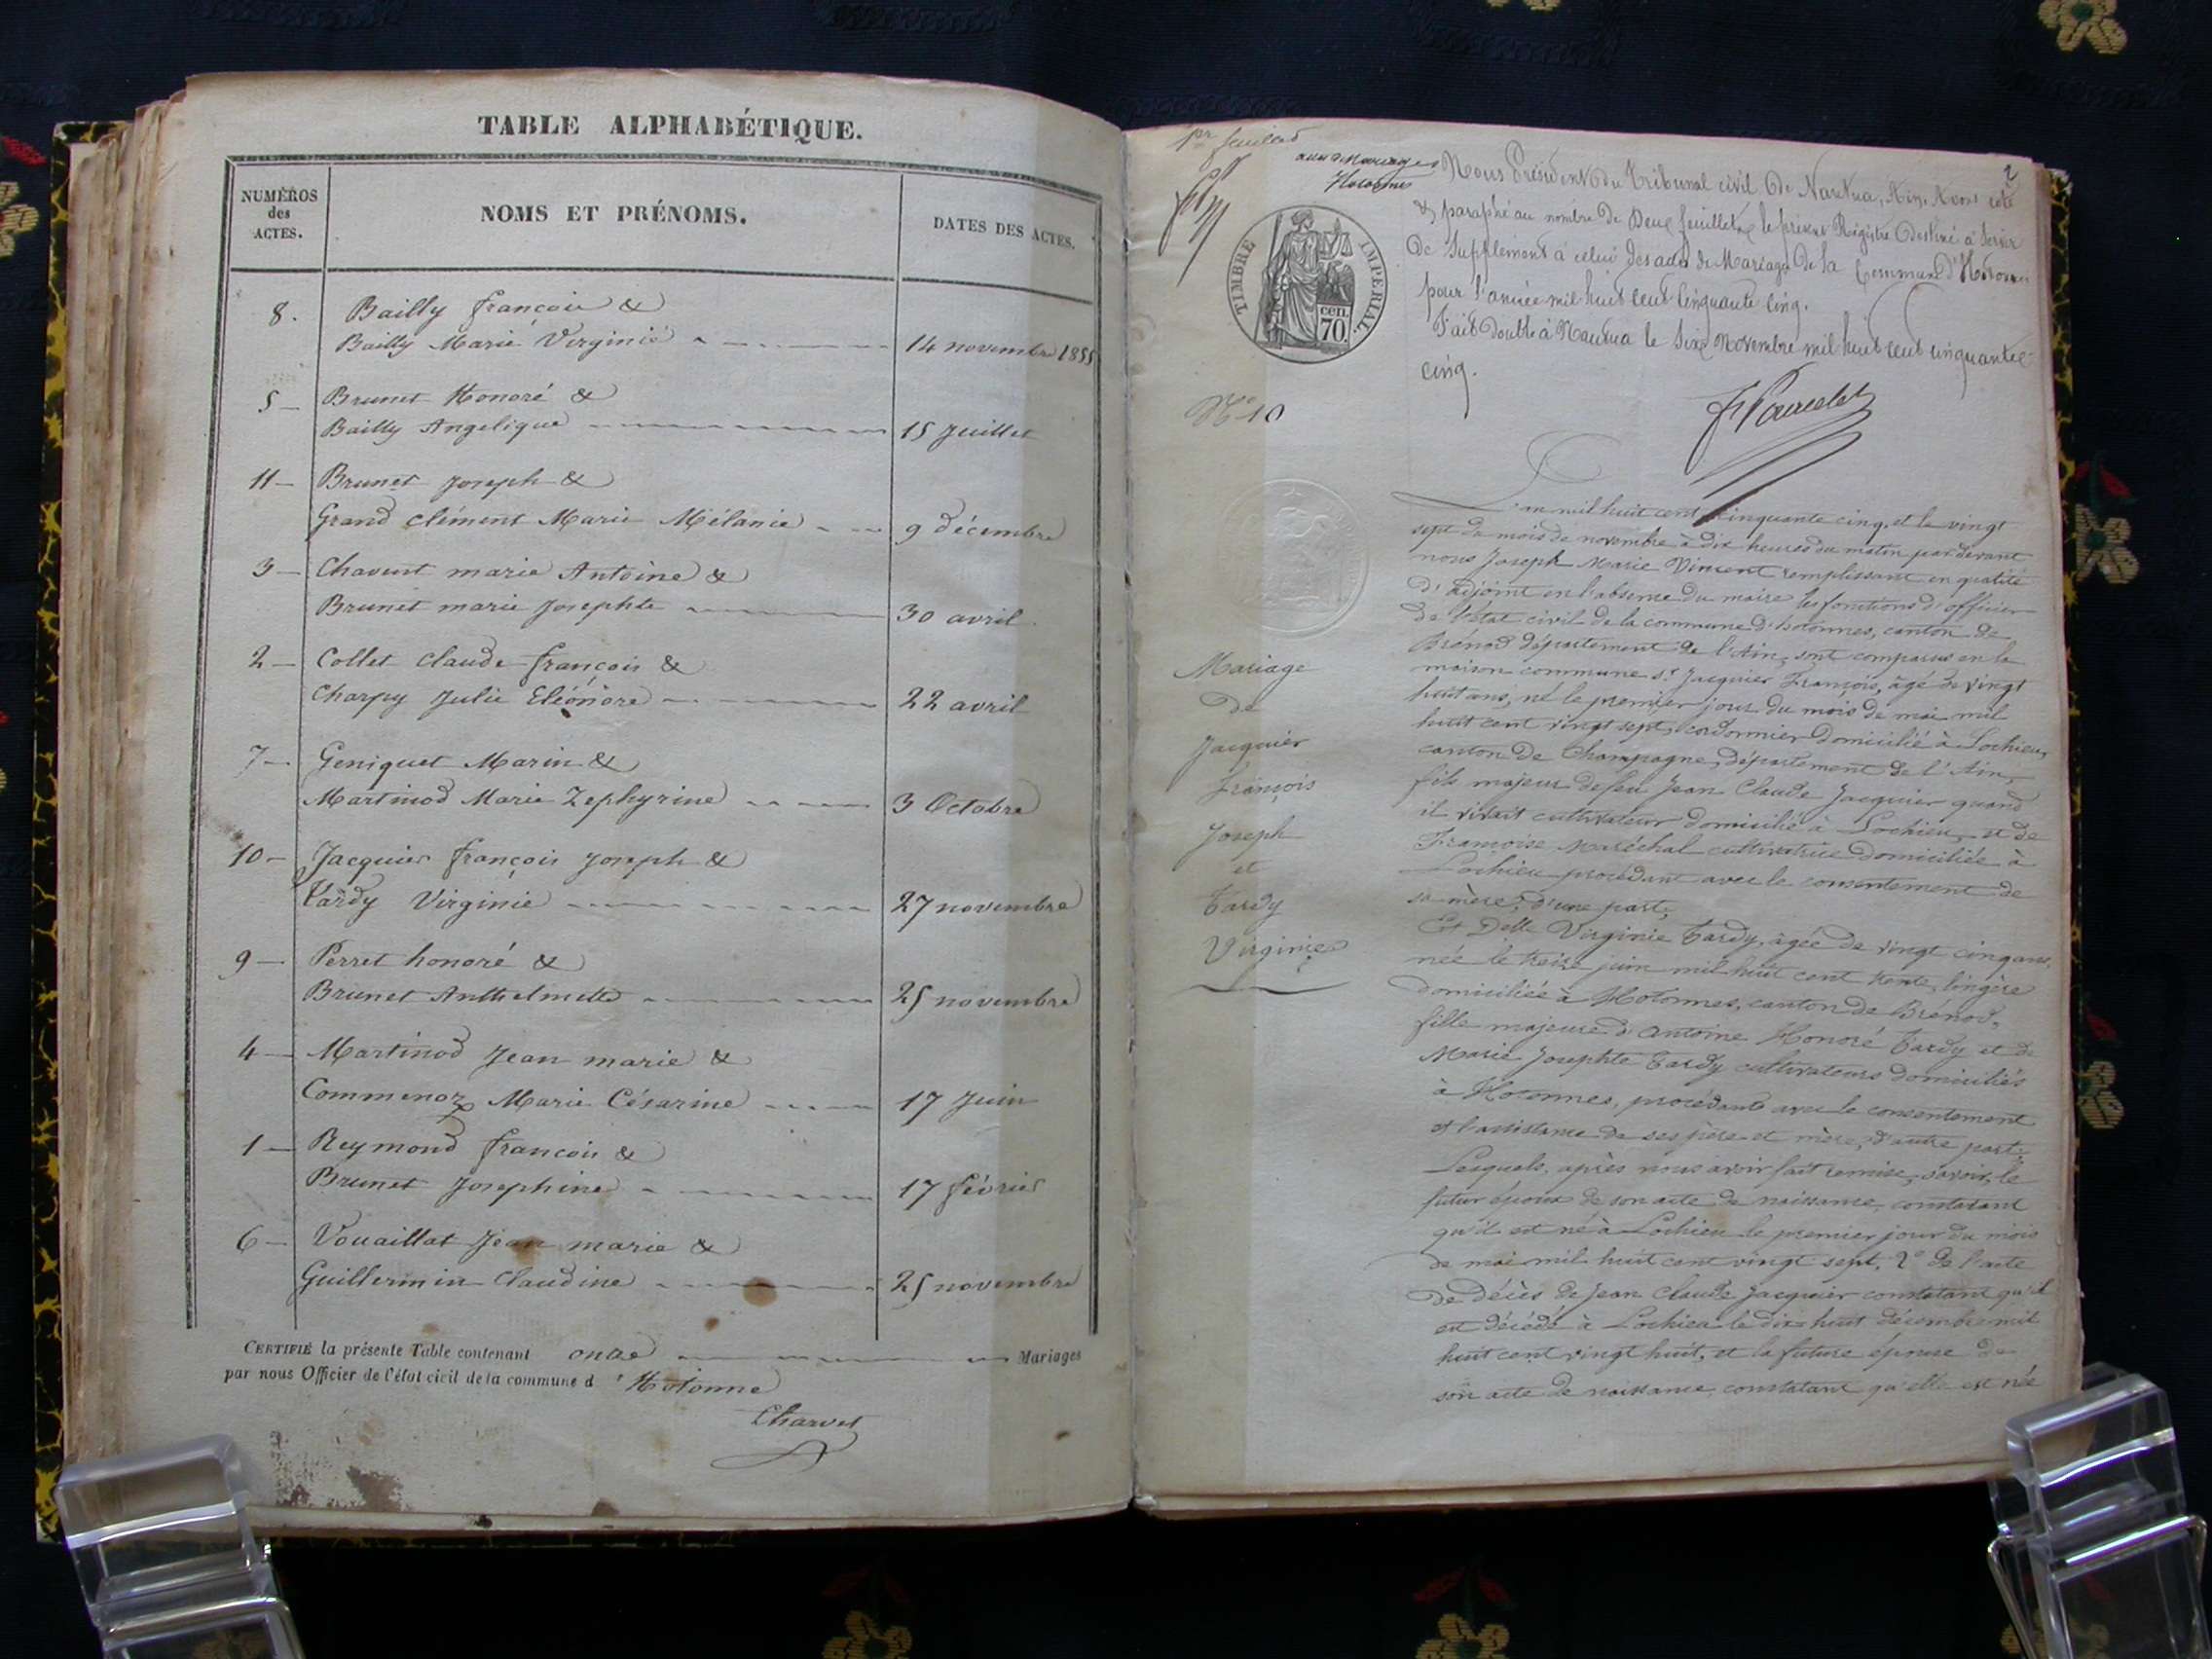 TABLE ALPHABÉTIQUE.
NUMÉROS
des
ACTES.
NOMS ET PRÉNOMS.
DATES DES ACTES.
8. Bailly françois &
Bailly Marie Virginie 14 novembre 1855
5 Brunet Honoré &
Bailly Angelique 15 Juillet
11 Brunet Joseph &
Grand clément Marie Mélanie 9 décembre
3 Chavent marie Antoine &
Brunet marie Josephte 30 avril
2 Collet claude françois &
Charpy Julie Eléonore 22 avril
7 Geniquet Marin &
Martinod Marie Zephyrine 3 Octobre
10 Jacquier françois Joseph &
Tardy Virginie 27 novembre
9 Perret honoré &
Brunet Anthelmette 25 novembre
4 Martinod Jean marie &
Commenoz Marie Césarine 17 Juin
1 Reymond françois &
Brunet Josephine 17 février
6 Vouaillat Jean marie &
Guillermin Claudine 25 novembre
CERTIFIÉ la présente Table contenant onze Mariages
par nous Officier de l'état civil de la commune d'Hotonne
Charvet
1er feuillet
2
Nous Président du Tribunal civil de Nantua, Ain, Avons coté
& paraphé au nombre de Deux feuillets le présent Régistre destiné à servir
de Supplément à celui des actes de Mariage de la Commune d'Hotonnes
pour l'année mil huit cent cinquante cinq.
Fait double à Nantua le Six Novembre mil huit cent cinquante
cinq.
TIMBRE IMPERIAL.
cen.
70.
N° 10
Mariage
de
Jacquier
François
Joseph
et
Tardy
Virginie
L'an mil huit cent cinquante cinq, et le vingt
sept du mois de novembre à dix heures du matin par devant
nous Joseph Marie Vincent remplissant en qualité
d'adjoint en l'absence du maire les fonctions d'officier
de l'état civil de la commune d'hotonnes, canton de
Brénod département de l'Ain, sont comparus en la
maison commune sr Jacquier François, âgé de vingt
huit ans, né le premier jour du mois de mai mil
huit cent vingt sept, cordonnier domicilié à Lochieu,
canton de Champagne, département de l'Ain,
fils majeur de feu Jean Claude Jacquier quand
il vivait cultivateur domicilié à Lochieu, et de
Françoise Maréchal cultivatrice domiciliée à
Lochieu procédant avec le consentement de
sa mère, d'une part,
Et Delle Virginie Tardy, âgée de vingt cinq ans,
née le treize juin mil huit cent trente, lingère
domiciliée à Hotonnes, canton de Brénod,
fille majeure d'Antoine Honoré Tardy et de
Marie Josephte Tardy cultivateurs domiciliés
à Hotonnes, procédant avec le consentement
et l'assistance de ses père et mère, d'autre part.
Lesquels, après nous avoir fait remise, savoir, le
futur époux de son acte de naissance, constatant
qu'il est né à Lochieu le premier jour du mois
de mai mil huit cent vingt sept, 2° de l'acte
de décès de Jean Claude Jacquier constatant qu'il
est décédé à Lochieu le dix huit décembre mil
huit cent vingt huit, et la future épouse de
son acte de naissance constatant qu'elle est née